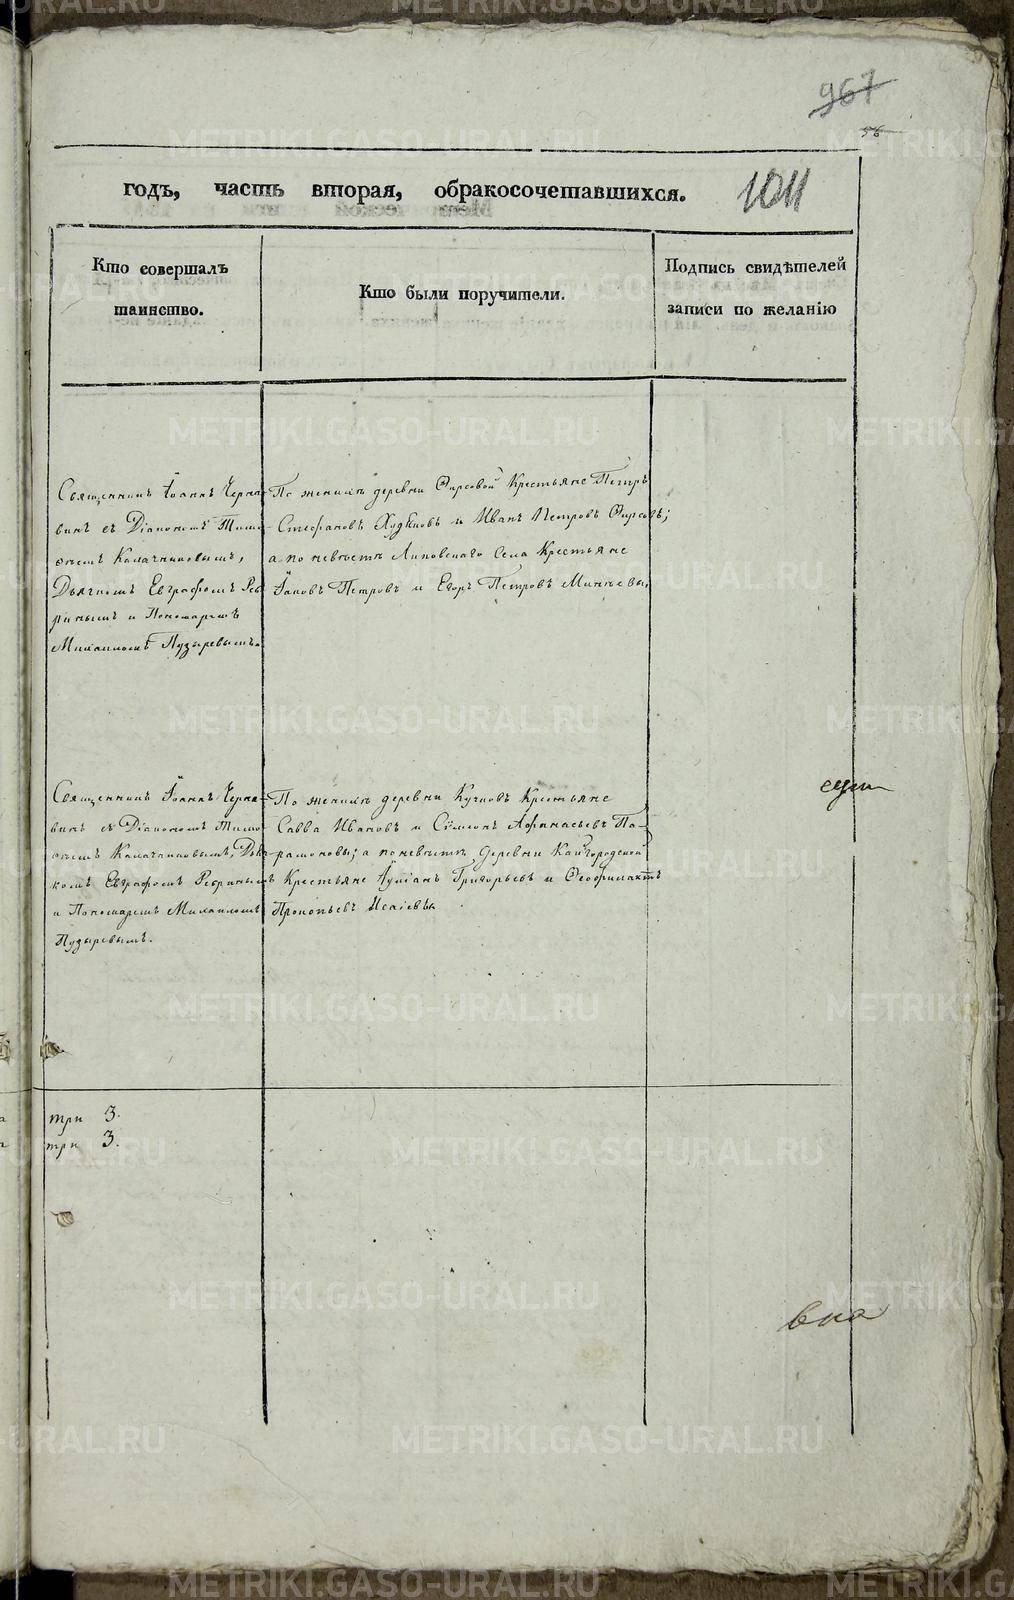 967
56
годъ, часть вторая, обракосочетавшихся.
1011
Кто совершалъ таинство.
Кто были поручители.
Подпись свидѣтелей записи по желанію
Священникъ Іоаннъ Черна-
винъ съ Діакономъ Тимо-
ѳеемъ Калачниковымъ,
Дьячкомъ Евграфомъ Реб-
ринымъ и Пономаремъ
Михаиломъ Пузыревымъ.
По женихѣ деревни Ѳирсовой Крестьяне Петръ
Стефановъ Худяковъ и Иванъ Петровъ Ѳирсовъ;
а по невѣстѣ Липовскаго Села Крестьяне
Іаковъ Петровъ и Егоръ Петровъ Минѣевы.
Священникъ Іоаннъ Черна-
винъ съ Діакономъ Тимо-
ѳеемъ Калачниковымъ, Дьяч-
комъ Евграфомъ Ребринымъ
и Пономаремъ Михаиломъ
Пузыревымъ.
По женихѣ деревни Крестьяне
Савва Ивановъ и Сѵмеонъ Афанасьевъ Па-
рамоновы; а по невѣстѣ Деревни Кайгородской
Крестьяне Григорьевъ и Ѳеофилактъ
Прокопьевъ Исаіевы
три 3.
три 3.
вна
METRIKI.GASO-URAL.RU